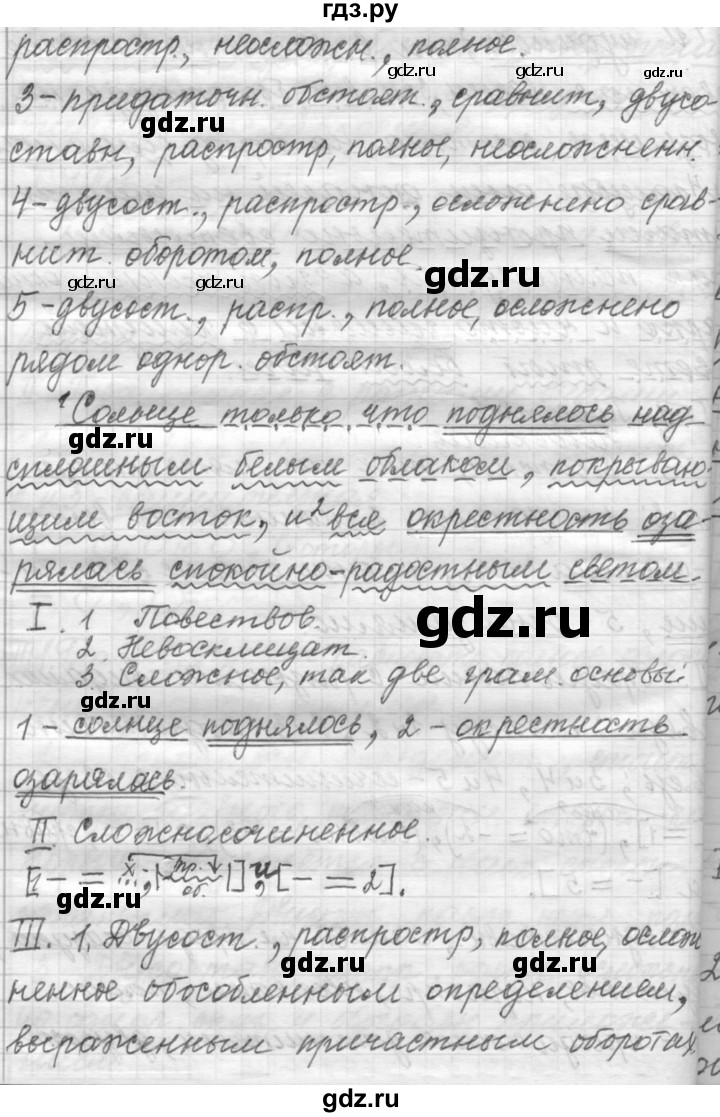 гдз.ру
распростр., неосложн., полное.
gdz.ru gdz.ru gdz.ru
3 - придаточн. обстоят., сравнит, двусо-
gdz.ru
ставн, распростр, полное, неосложненн.
4 - двусост., распростр., осложнено срав-
нит. оборотом, полное.
gdz.ru
gdz.ru gdz.ru gdz.ru
5 - двусост., распр., полное, осложнено
рядом однор. обстоят.
1 Солнце только что поднялось над
gdz.ru
сплошным белым облаком, покрываю-
щим восток, и 2 вся окрестность оза-
рялась спокойно-радостным светом.
I. 1 Повествов.
gdz.ru
2. Невосклицат.
3. Сложное, так две грам. основы:
gdz.ru
1 - солнце поднялось, 2 - окрестность
озарялась.
II Сложносочиненное.
[1 - = х, |пр. об.|], и [- = 2].
gdz.ru
III. 1. Двусост., распростр, полное, ослож
gdz.ru gdz.ru
ненное обособленным определением,
выраженным причастным оборотах
gdz.ru
gdz.ru